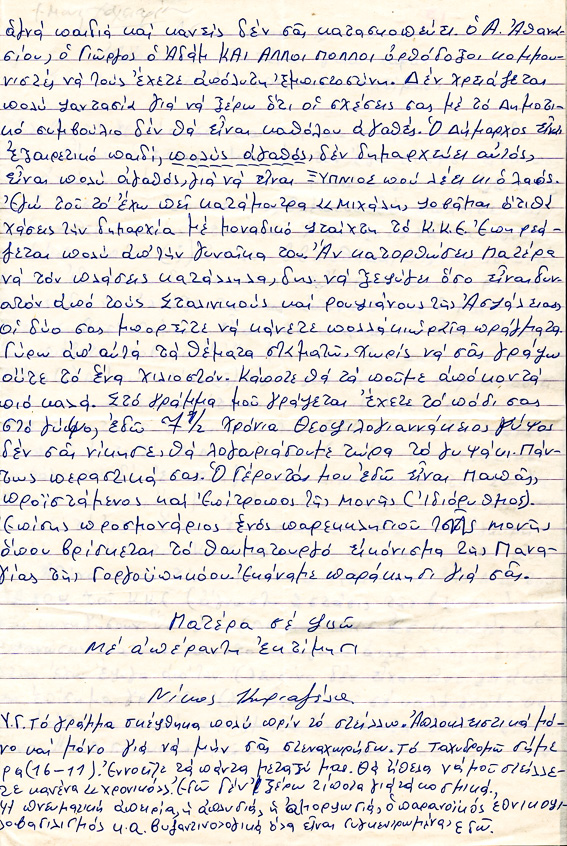 ἁγνά παιδιά καί κανείς δέν σᾶς κατασκοπεύει. ὁ Α. Ἀθανα-
σίου, ὁ Γιῶργος ὁ Ἀδάμ ΚΑΙ ΑΛΛΟΙ ΠΟΛΛΟΙ ὀρθόδοξοι κομμου-
νιστές νά τούς ἔχετε ἀπόλυτη ἐμπιστοσύνη. Δέν χρειάζεται
πολύ φαντασία γιά νά ξέρω ὅτι οἱ σχέσεις σας μέ τό Δημοτι-
κό συμβούλιο δέν θά εἶναι καθόλου ἀγαθές. Ὁ Δήμαρχος εἶναι
ἐξαιρετικό παιδί, πολύς ἀγαθός, δέν δημαρχεύει αὐτός,
εἶναι πολύ ἀγαθός, γιά νά εἶναι ΞΥΠΝΙΟΣ πού λέει κι ὁ λαός.
Ἐγώ τοῦ τό ἔχω πεῖ κατάμουτρα «Μιχάλη φοβᾶμαι ὅτι θά
χάσεις τήν δημαρχία μέ μοναδικό φταίχτη τό Κ.Κ.Ε. Ἐπηρεά-
ζεται πολύ ἀπ' τήν γυναῖκα του. Ἄν κατορθώσης Πατέρα
νά τόν πλάσεις κατάλληλα, δηλ. νά ξεφύγει ὅσο εἶναι δυν-
ατόν ἀπό τούς Σταλινικούς καί ρουφιάνους τῆς Ἀσφάλειας
οἱ δύο σας μπορεῖτε νά κάνετε πολλά κι ὡραῖα πράγματα.
Γύρω ἀπ' αὐτά τά θέματα σταματῶ, χωρίς νά σᾶς γράψω
οὔτε τό ἕνα χιλιοστόν. Κάποτε θά τά ποῦμε ἀπό κοντά
πιό καλά. Στό γράμμα μοῦ γράφεται ἔχετε τό πόδι σας
στό γύψο, ἐδῶ 7 1/2 χρόνια Θεοφιλογιαννάκειος γύψος
δέν σᾶς νίκησε, θά λογαριάσουμε τώρα τό γυψάκι. Πάν-
τως περαστικά σας. Ὁ Γέροντάς μου ἐδῶ εἶναι Παπᾶς,
προϊστάμενος καί ἐπίτροπος τῆς μονῆς (ἰδιόρυθμος).
Ἐπίσης προσμονάριος ἑνός παρεκκλησιοῦ τῆς μονῆς
ὅπου βρίσκεται τό θαυματουργό εἰκόνισμα τῆς Πανα-
γίας τῆς Γοργοϋπηκόου. Ἐκάναμε παράκλησι γιά σᾶς.
Πατέρα σέ φιλῶ
Μέ ἀπέραντη ἐκτίμησι
Νίκος
Υ.Γ. Τό γράμμα σκέφθηκα πολύ πρίν τό στείλλω. Ἀποκλειστικά μό-
νο καί μόνο γιά νά μήν σᾶς στεναχωρήσω. Τό ταχυδρομῶ σήμε
ρα (16-11). Ἐννοεῖτε τά πάντα μεταξύ μας. Θά ἤθελα νά μοῦ στείλλε-
τε κανένα «χρονικό». Ἐδῶ δέν ξέρω τίποτα γιά τά κοσμικά,
Ἡ πνευματική ἀπειρία, ἡ ἀμορφωσιά, ὁ παρανοϊκός ἐθνικοφι-
λοβασιλισμός κ.α. βυζαντινολογικά ὅλα εἶναι συγκεντρωμένα ἐδῶ.